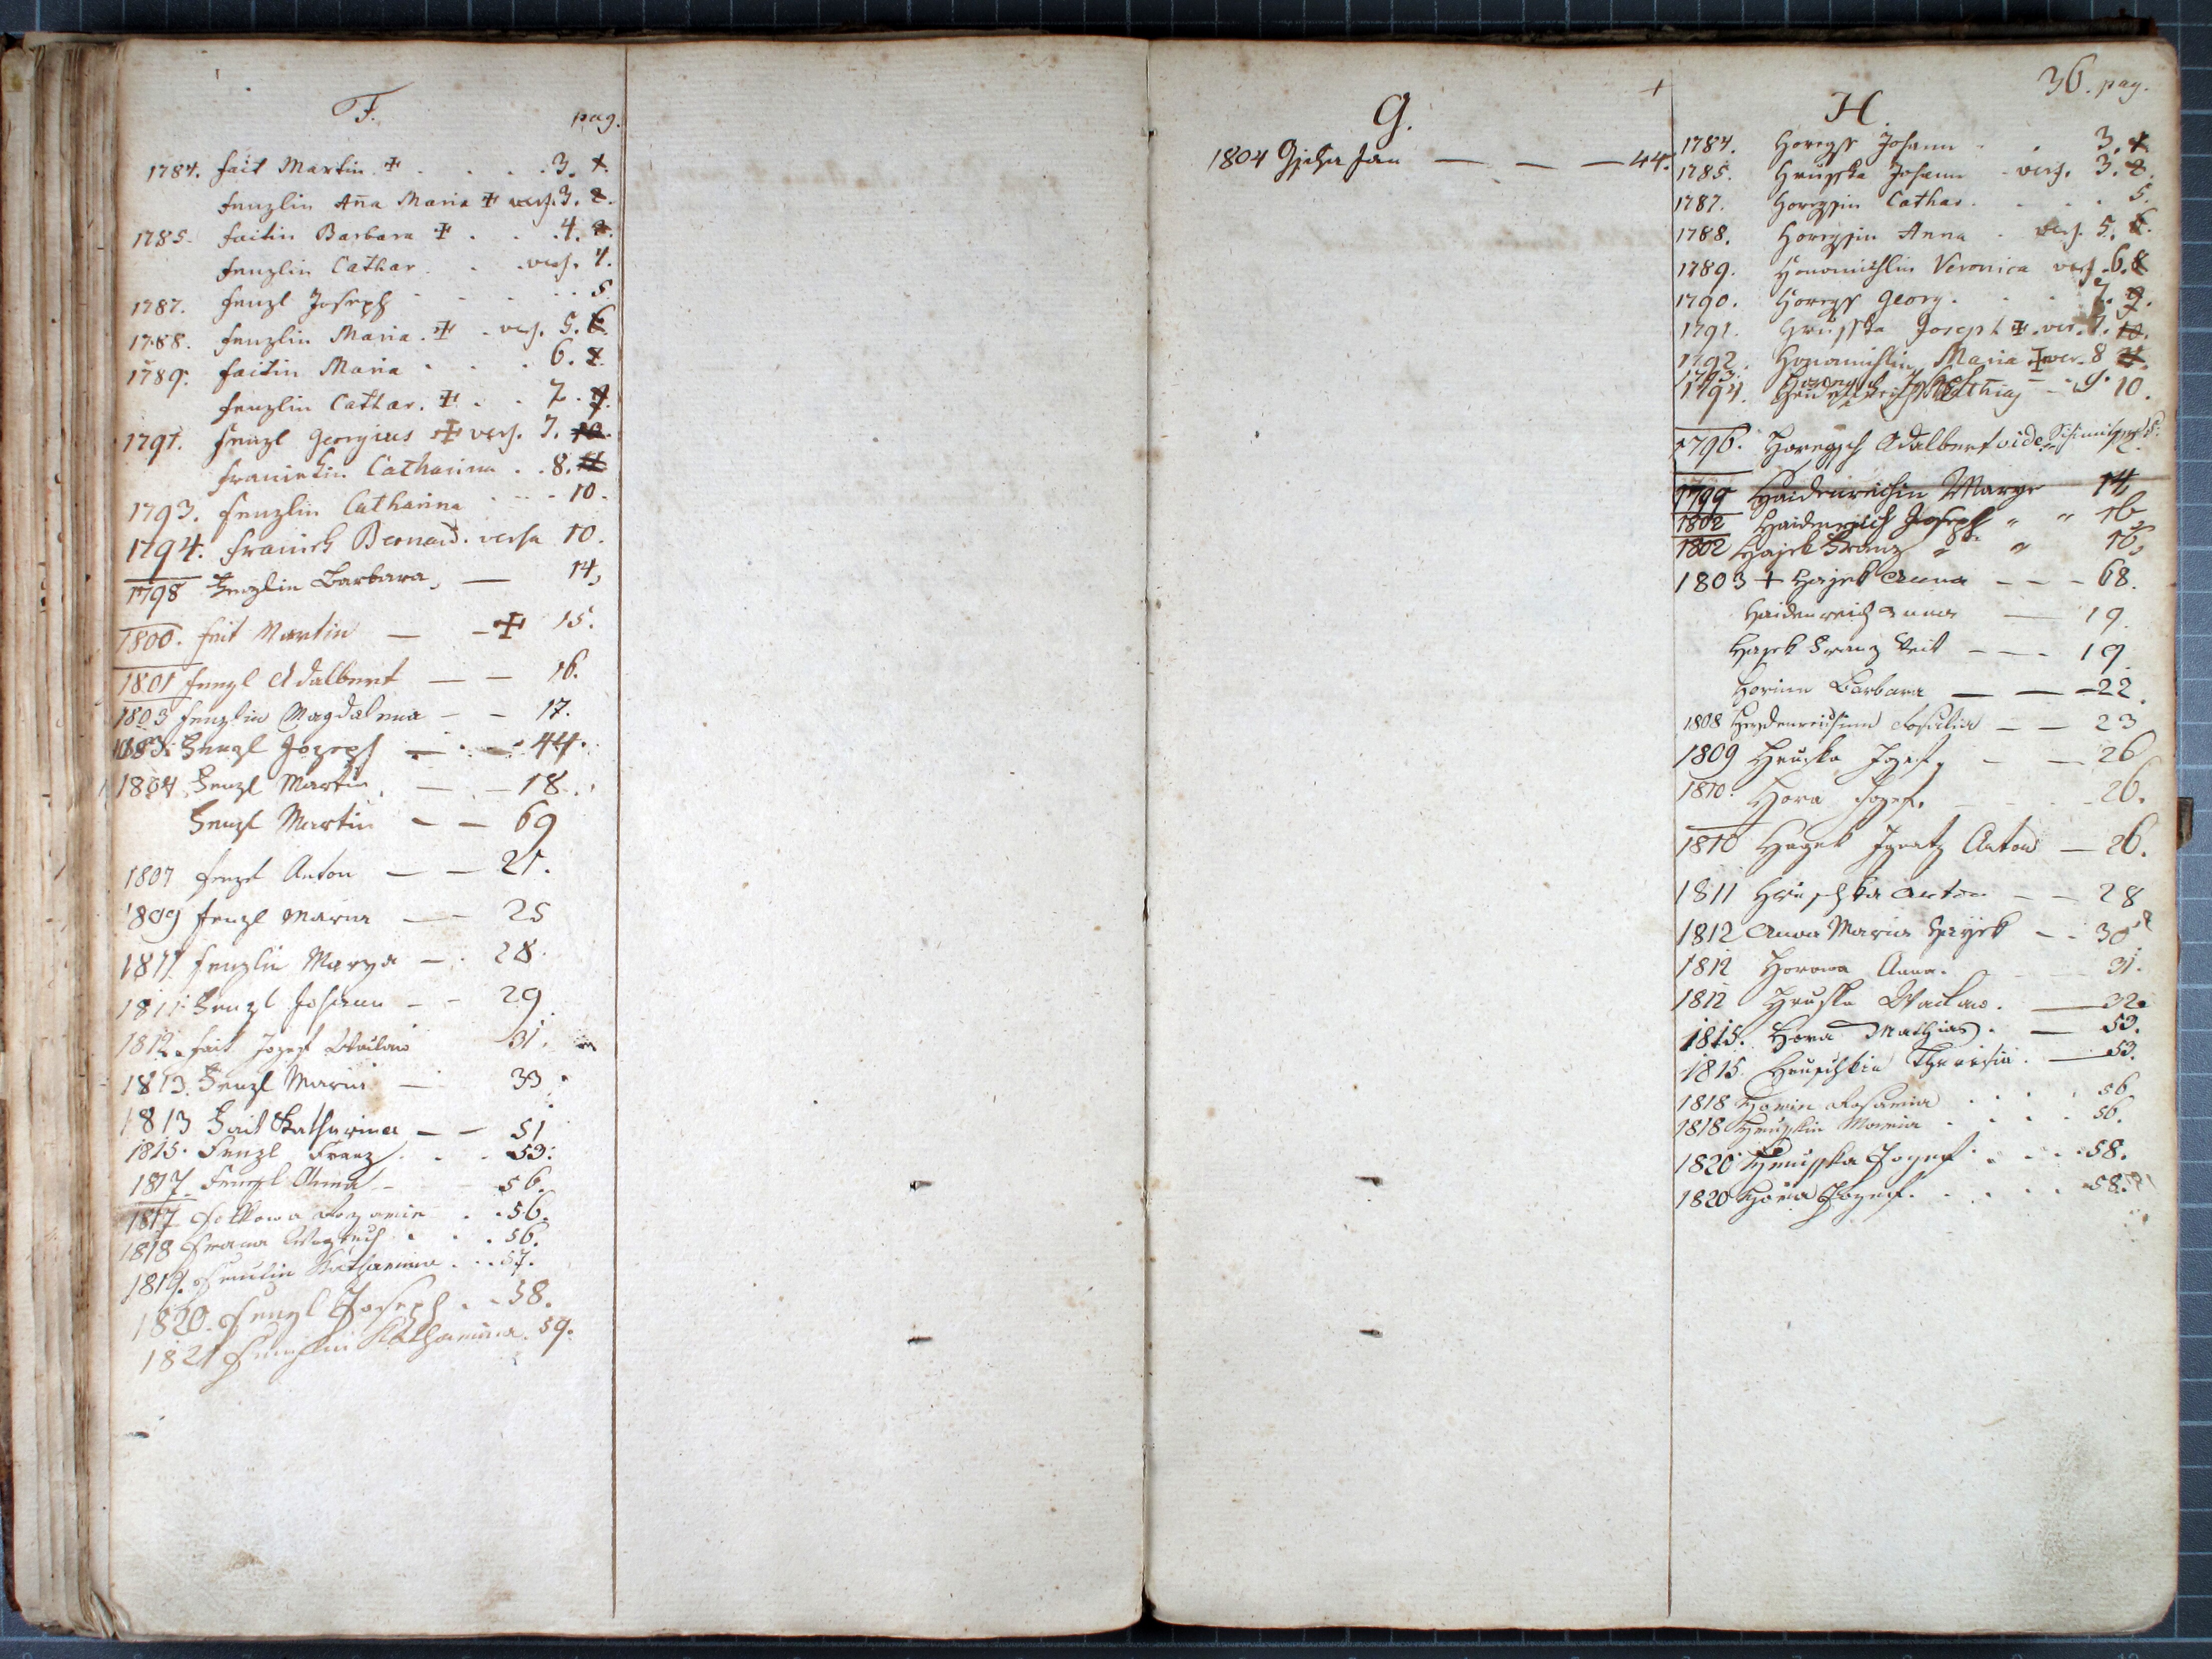 F.
pag.
1784. Fait Martin ✠ . . . . 3.
Fenzlin Aña Maria ✠ vers. 3.
1785. Faitin Barbara ✠ . . . 4.
Fenzlin Cathar. . . vers. 4.
1787. Fenzl Joseph . . . . 5.
1788. Fenzlin Maria. ✠ . vers. 5.
1789. Faitin Maria . . . 6.
Fenzlin Cathar. ✠ . . 7.
1791. Fenzl Georgius ✠ vers. 7.
Catharina . . 8.
1793. Fenzlin Catharina . . . 10.
1794. Bernard. versa 10.
1798 Fenzlin Barbara, — 14,
1800. Fait Martin — — ✠ 15.
1801 Fenzl Adalbert — — 16.
1803 Fenzlin Magdalena — — 17.
1803. Fenzl Jozeph — . — 44.
1804 Fenzl Martin. — — 18.
Fenzl Martin — — 69
1807 Fenzl Anton — — 21.
1809 Fenzl Maria — — 25
1811 Fenzlin Marya — . 28.
1811. Fenzl Johann — — 29.
1812. Fait Jozef Waclaw 31.
1813. Fenzl Maria — 33.
1813 Fait Katharina — — 51
1815. Fenzl Franz . . . 53.
1817. Fenzl Anna — 56.
1817 . . 56.
1818 . . . 56.
1819. Katharina . . . 57.
1820. Fenzl Joseph . . 58.
1821 Fenzlin Katharina. 59.
G.
1804 Jan — — — 44.
36. pag.
H
1784. Horegss Johann . . 3.
1785. Hrusska Johann . vers. 3.
1787. Horegssin Cathar. . . . 5.
1788. Horegssin Anna . vers. 5.
1789. Honomichlin Veronica vers. 6.
1790. Horegss Georg. . . . 7.
1791. Hrusska Joseph ✠. ver. 7.
1792. Honomichlin Maria ✠ ver. 8
1793. 9.
1794. Mathias — 10.
1796. Horegsch Adalbert vide
1799 Haidenreichin Marye 14
1802 Haidenreich Joseph " " 16
1802 Hajek Franz " " 16,
1803 + Hajek Anna — — — 68.
Haidenreich Anna — 19.
Hajek Franz Veit — — — 19.
Horinn Barbara — — — 22.
1808 — — 23
1809 Hruska Jozef, — — 26
1810. Hora Jozef. — — — 26.
1810 Hagek Ignatz Anton — 26.
1811 Hruschka Anton — — 28
1812 Anna Maria Hayek — — 30
1812 Horowa Anna. — — 31.
1812 Hruska Waclaw. — 32.
1815. Hora Mathias. — 53.
1815. Hruschkin Theresia. — 53.
1818 Horin Rosamia . . . . 56
1818 Hrusskin Maria . . . . 56.
1820 Hrusska Jozef . . . . 58.
1820 Hora Jozef. . . . . 58.